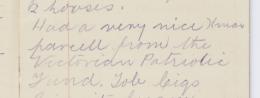 & houses.
Had a very nice Xmas
parcell from the
Victorian Patriotic
Fund. Tob Cigs